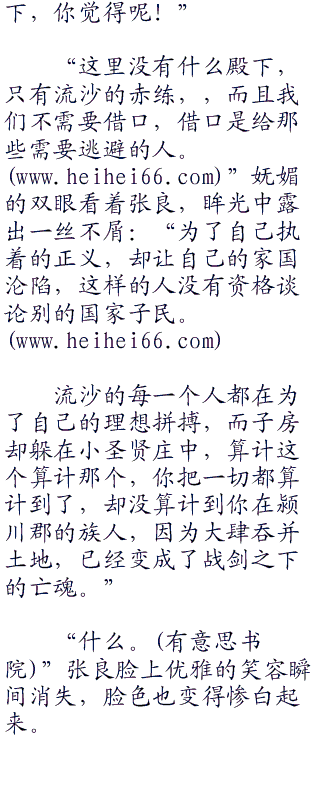 下，你觉得呢！”
“这里没有什么殿下，
只有流沙的赤练，，而且我
们不需要借口，借口是给那
些需要逃避的人。
(www.heihei66.com)”妩媚
的双眼看着张良，眸光中露
出一丝不屑：“为了自己执
着的正义，却让自己的家国
沦陷，这样的人没有资格谈
论别的国家子民。
(www.heihei66.com)
流沙的每一个人都在为
了自己的理想拼搏，而子房
却躲在小圣贤庄中，算计这
个算计那个，你把一切都算
计到了，却没算计到你在颍
川郡的族人，因为大肆吞并
土地，已经变成了战剑之下
的亡魂。”
“什么。(有意思书
院)”张良脸上优雅的笑容瞬
间消失，脸色也变得惨白起
来。